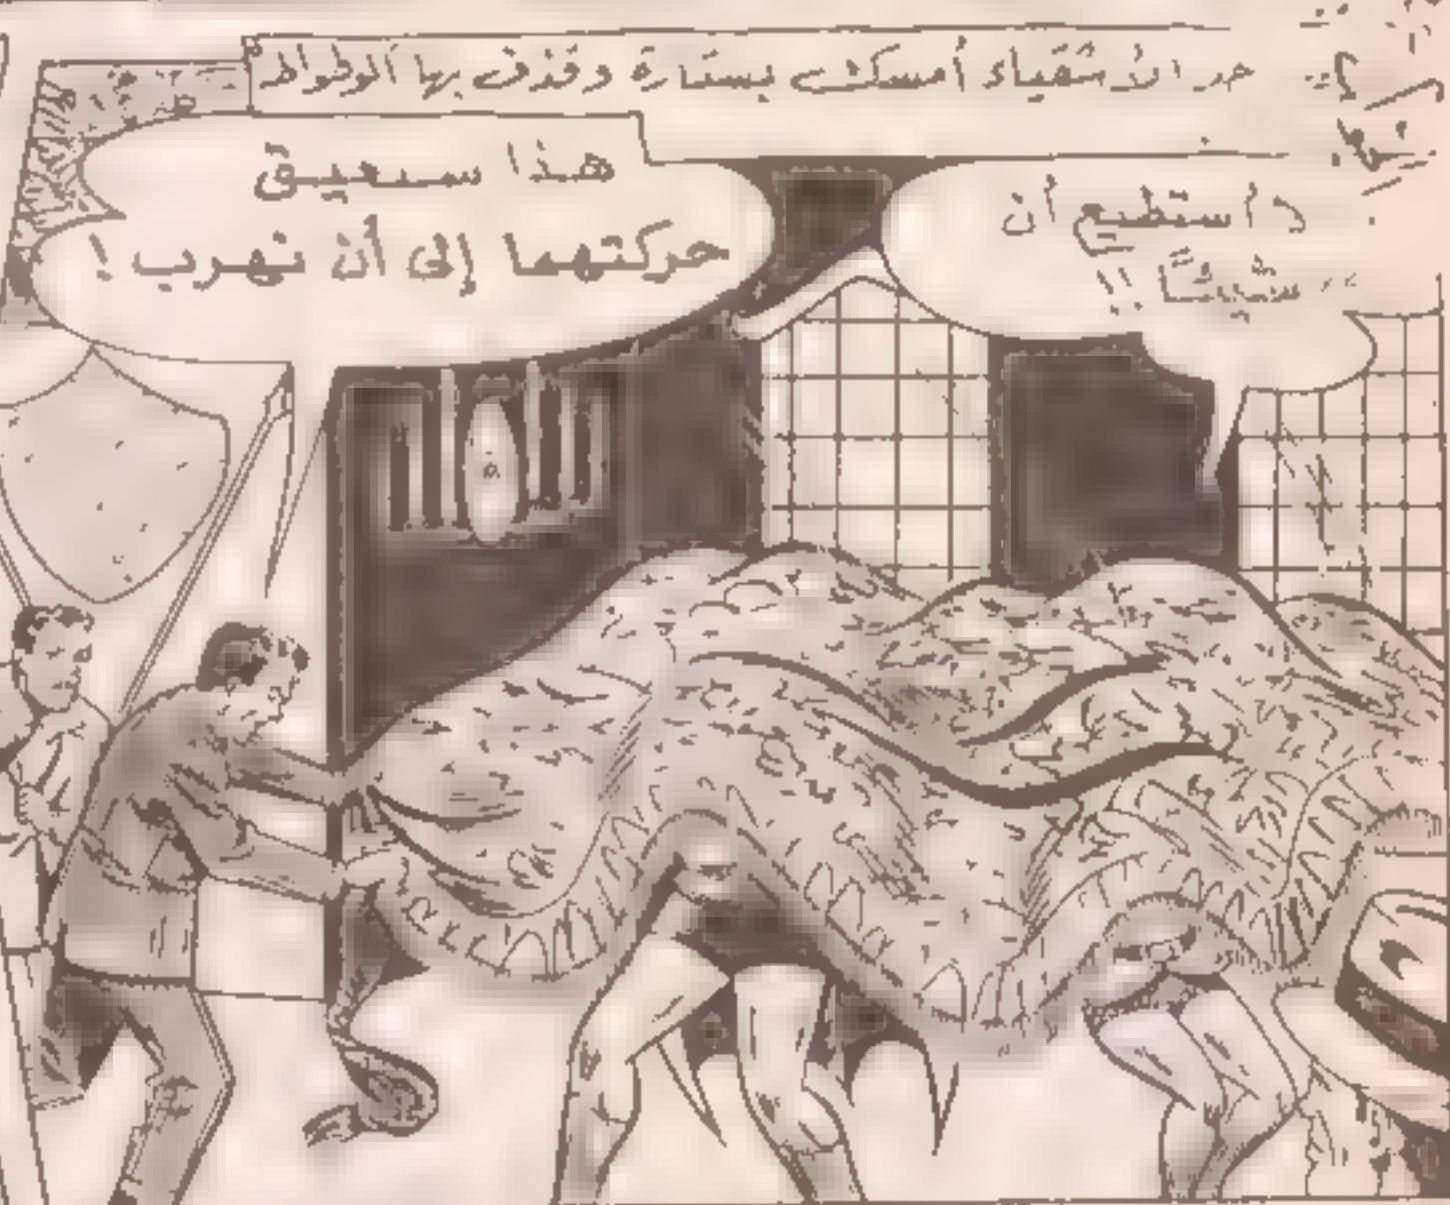 الأشقياء أمسك بستارة وقذف بها الوطواط
أستطيع أن
شيئًا !!
هذا سيعيق
حركتهما إلى أن نهرب !